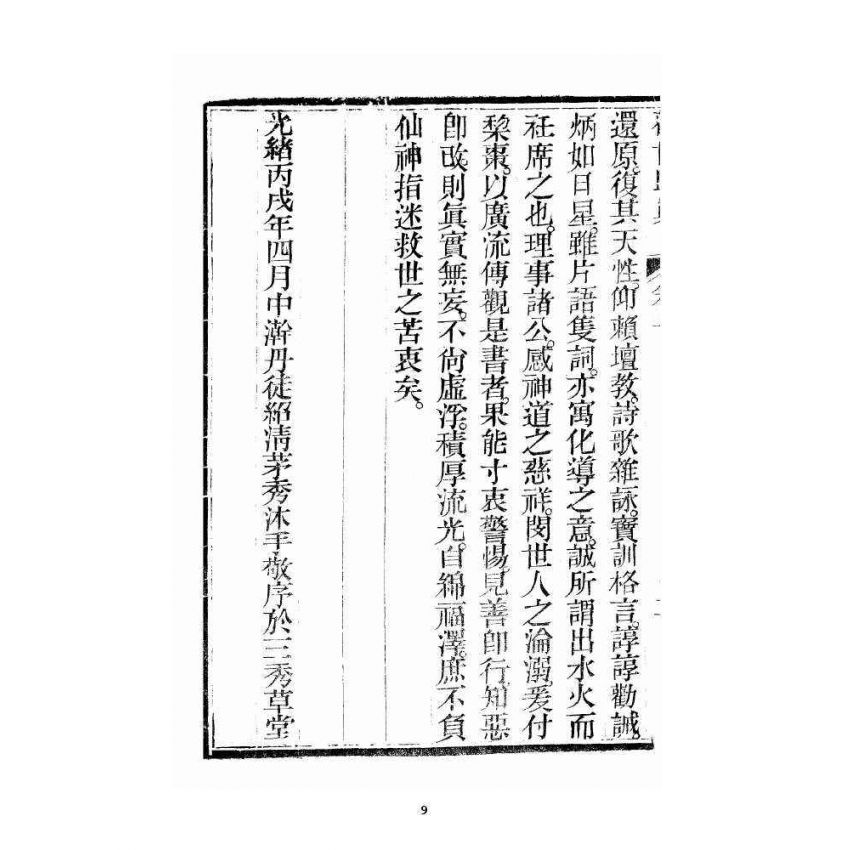 還原。復其天性。仰賴壇教。詩歌雜詠。寶訓格言。諄諄勸誡。
炳如日星。雖片語隻詞。亦寓化導之意。誠所謂出水火而
袵席之也。理事諸公。感神道之慈祥。閔世人之淪溺。爰付
棃棗。以廣流傳觀是書者。果能寸衷警惕。見善卽行。知惡
卽改。則眞實無妄。不尙虛浮。積厚流光。自綿福澤。庶不負
仙神指迷救世之苦衷矣。
光緒丙戌年四月中澣丹徒紹淸茅秀沐手敬序於三秀草堂
9